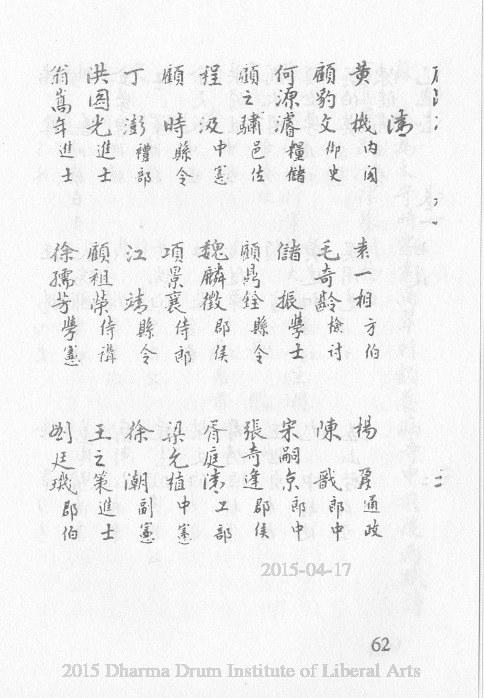 清
黃 機內閣
袁一相方伯
楊 鼐通政
顧豹文御史
毛奇齡檢討
陳 戩郎中
何源濬糧儲
儲 振學士
宋嗣京郎中
顧之驌邑佐
顧昌銓縣令
張奇逢郡侯
程 汲中憲
魏麟徵郡侯
胥庭清工部
顧 時縣令
項景襄侍郎
梁允植中憲
丁 澎禮部
江 漪縣令
徐 潮副憲
洪圖光進士
顧祖榮侍講
王之策進士
翁嵩年進士
徐孺芳學憲
劉廷璣郡伯
2015-04-17
62
2015 Dharma Drum Institute of Liberal Arts